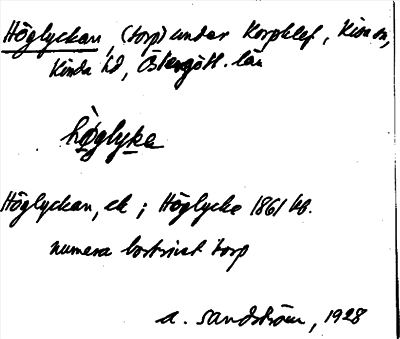 Höglyckan, (torp) under Korpklef, Kisa sn,
Kinda hd, Östergötl. län
hö̀glyka
Höglyckan, ek ; Höglycke 1861 kb.
numera bortrivet torp
A. Sandström, 1928